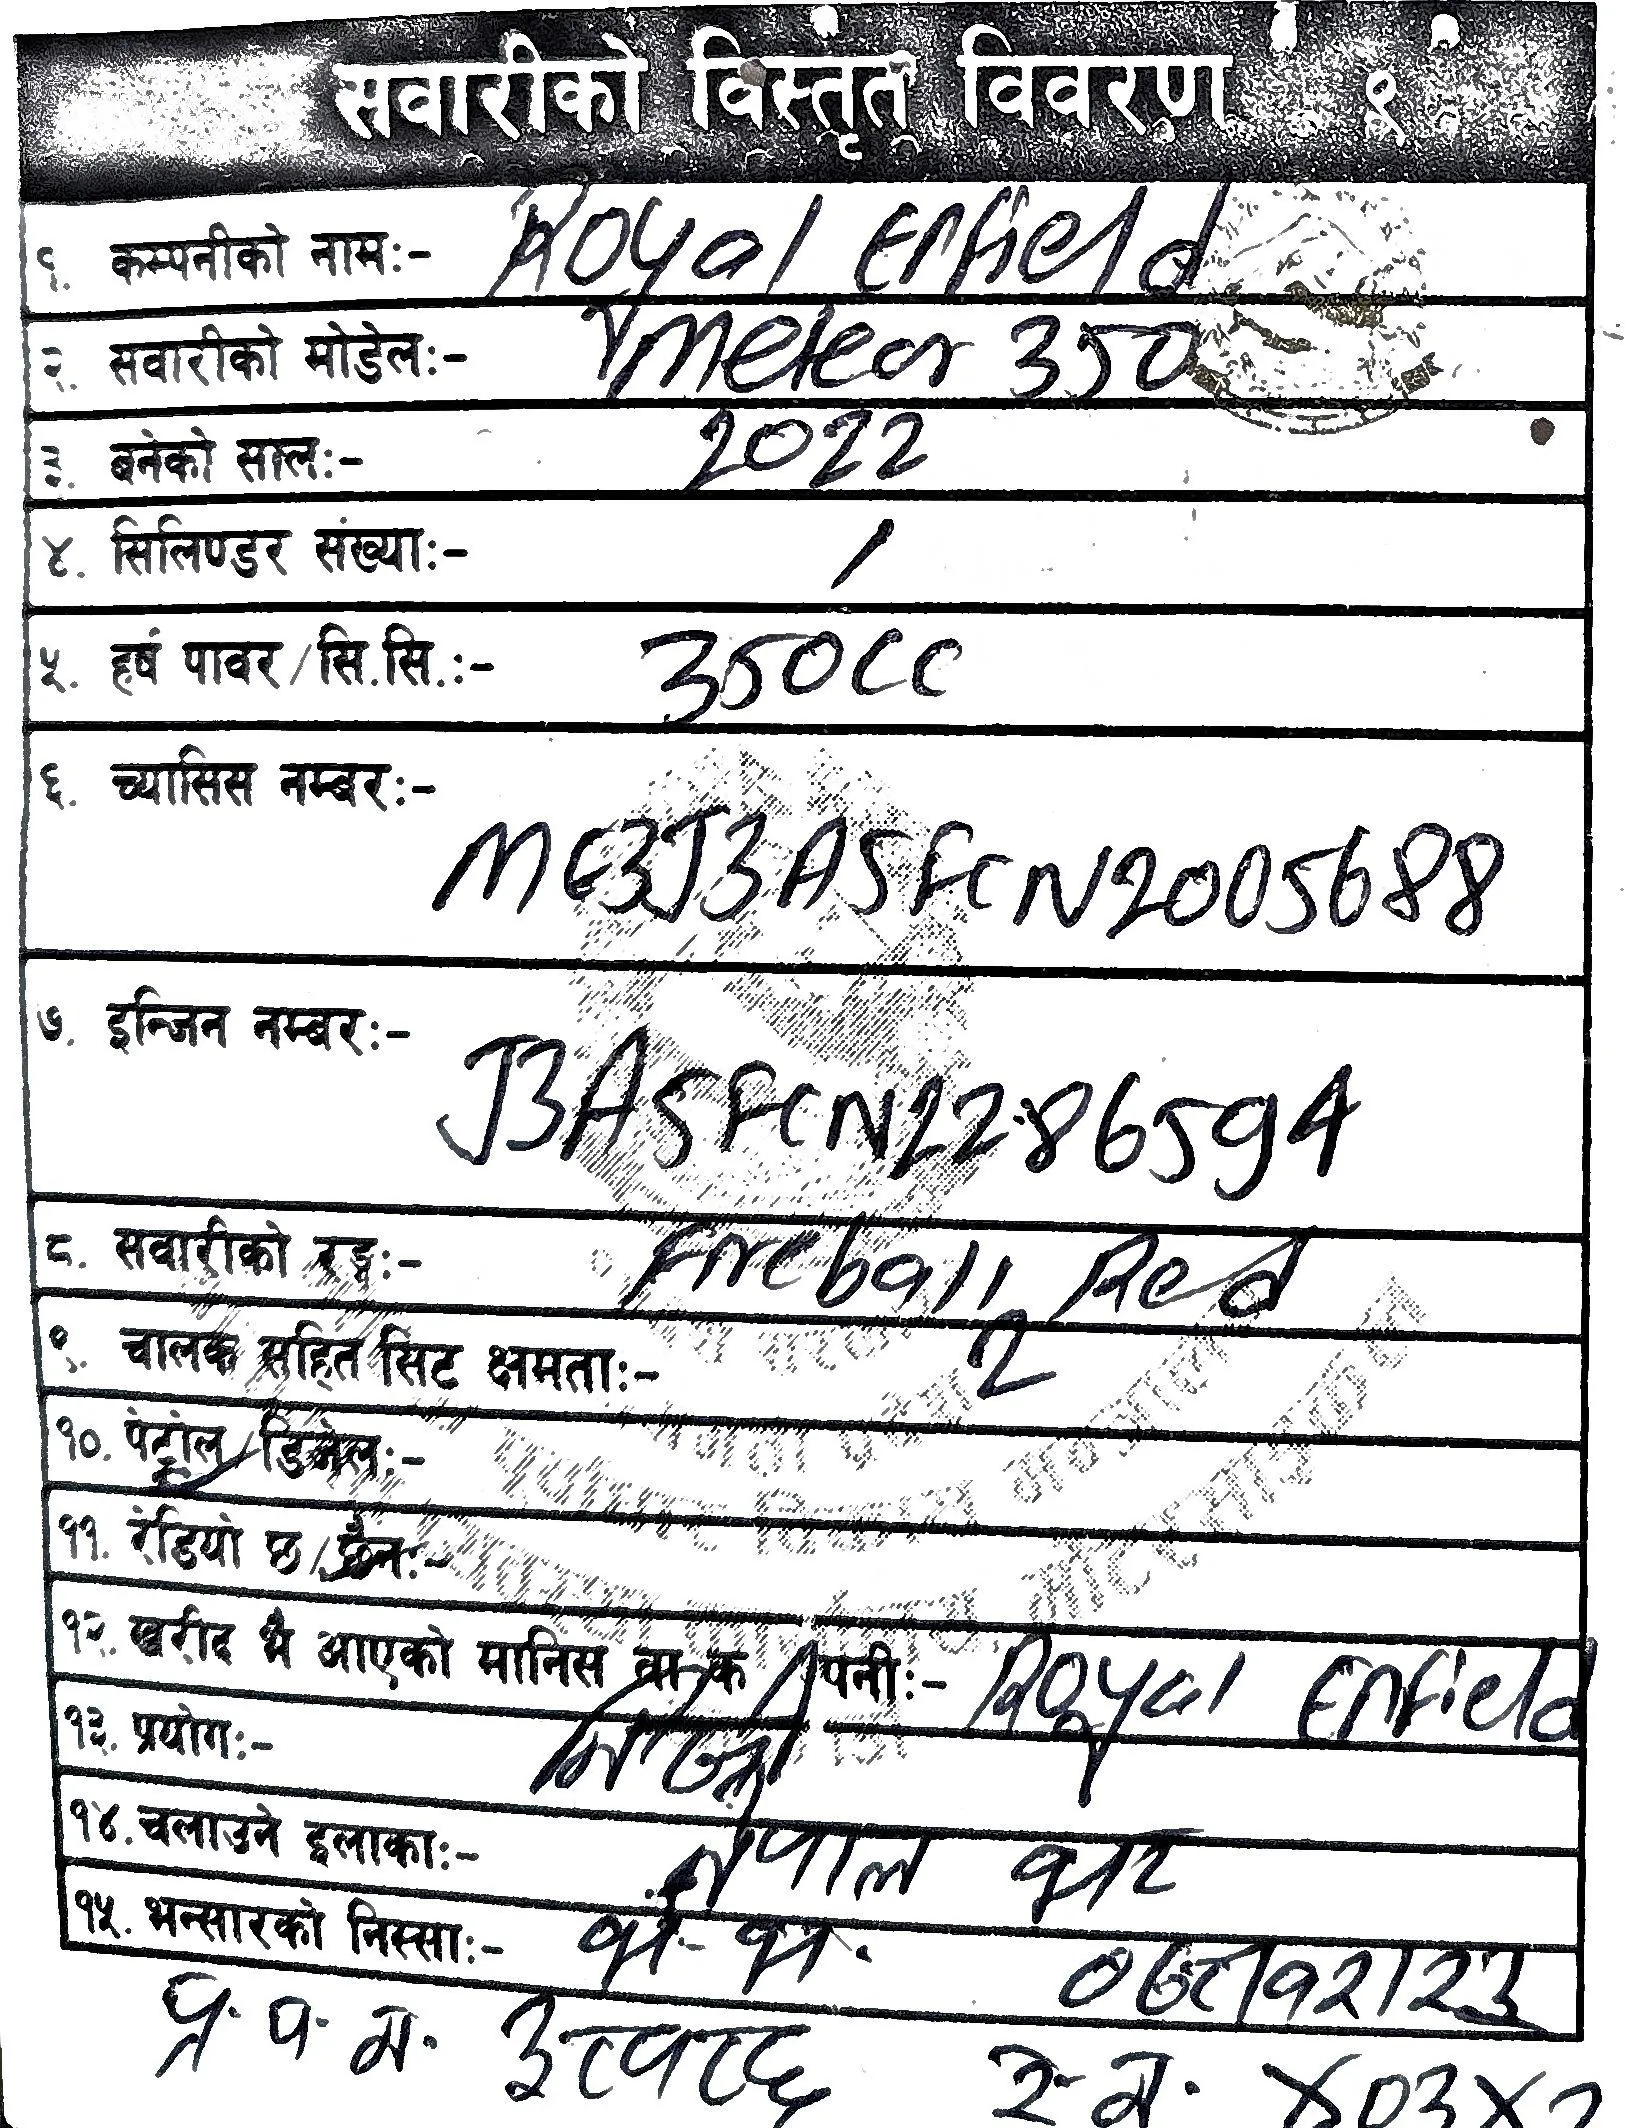 सवारीको विस्तृत विवरण १
१. कम्पनीको नामः- Royal Enfield
२. सवारीको मोडेलः- Meteor 350
३. बनेको सालः- 2022
४. सिलिण्डर संख्याः- 1
५. हर्ष पावर/सि.सि.ः- 350CC
६. च्यासिस नम्बरः-
ME3J3A5FCN2005688
७. इन्जिन नम्बरः-
J3A5FCN2286594
८. सवारीको रङ्गः- Fireball Red
९. चालक सहित सिट क्षमताः- 2
१०. पेट्रोल/डिजेलः-
११. रेडियो छ/छैनः-
१२. खरीद भै आएको मानिस वा कम्पनीः- Royal Enfield
१३. प्रयोगः- निजी
१४. चलाउने इलाकाः- नेपाल भर
१५. भन्सारको निस्साः- भै. भ.
प्र. प. नं. र. नं.